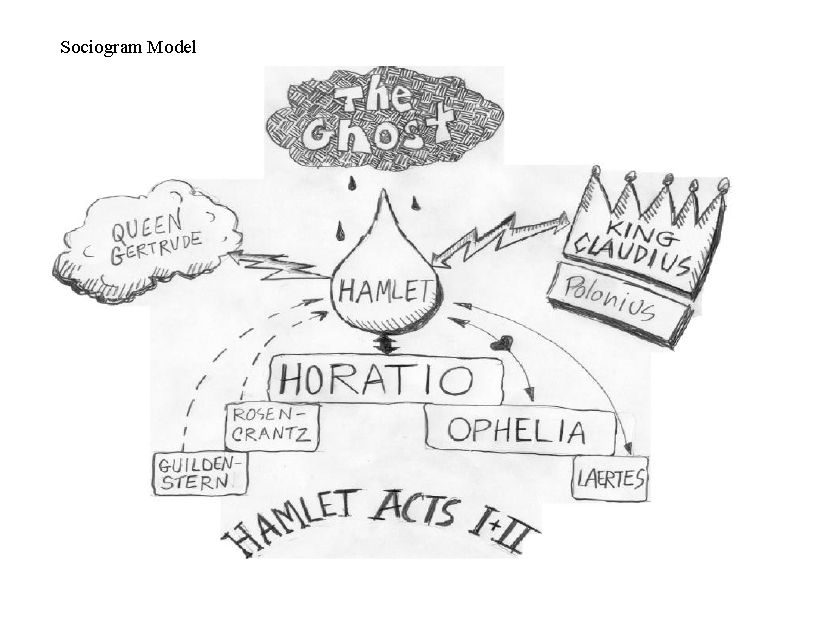 Sociogram Model
The
Ghost
QUEEN
GERTRUDE
KING
CLAUDIUS
Polonius
HAMLET
HORATIO
ROSEN-
CRANTZ
OPHELIA
GUILDEN-
STERN
LAERTES
HAMLET ACTS I+II